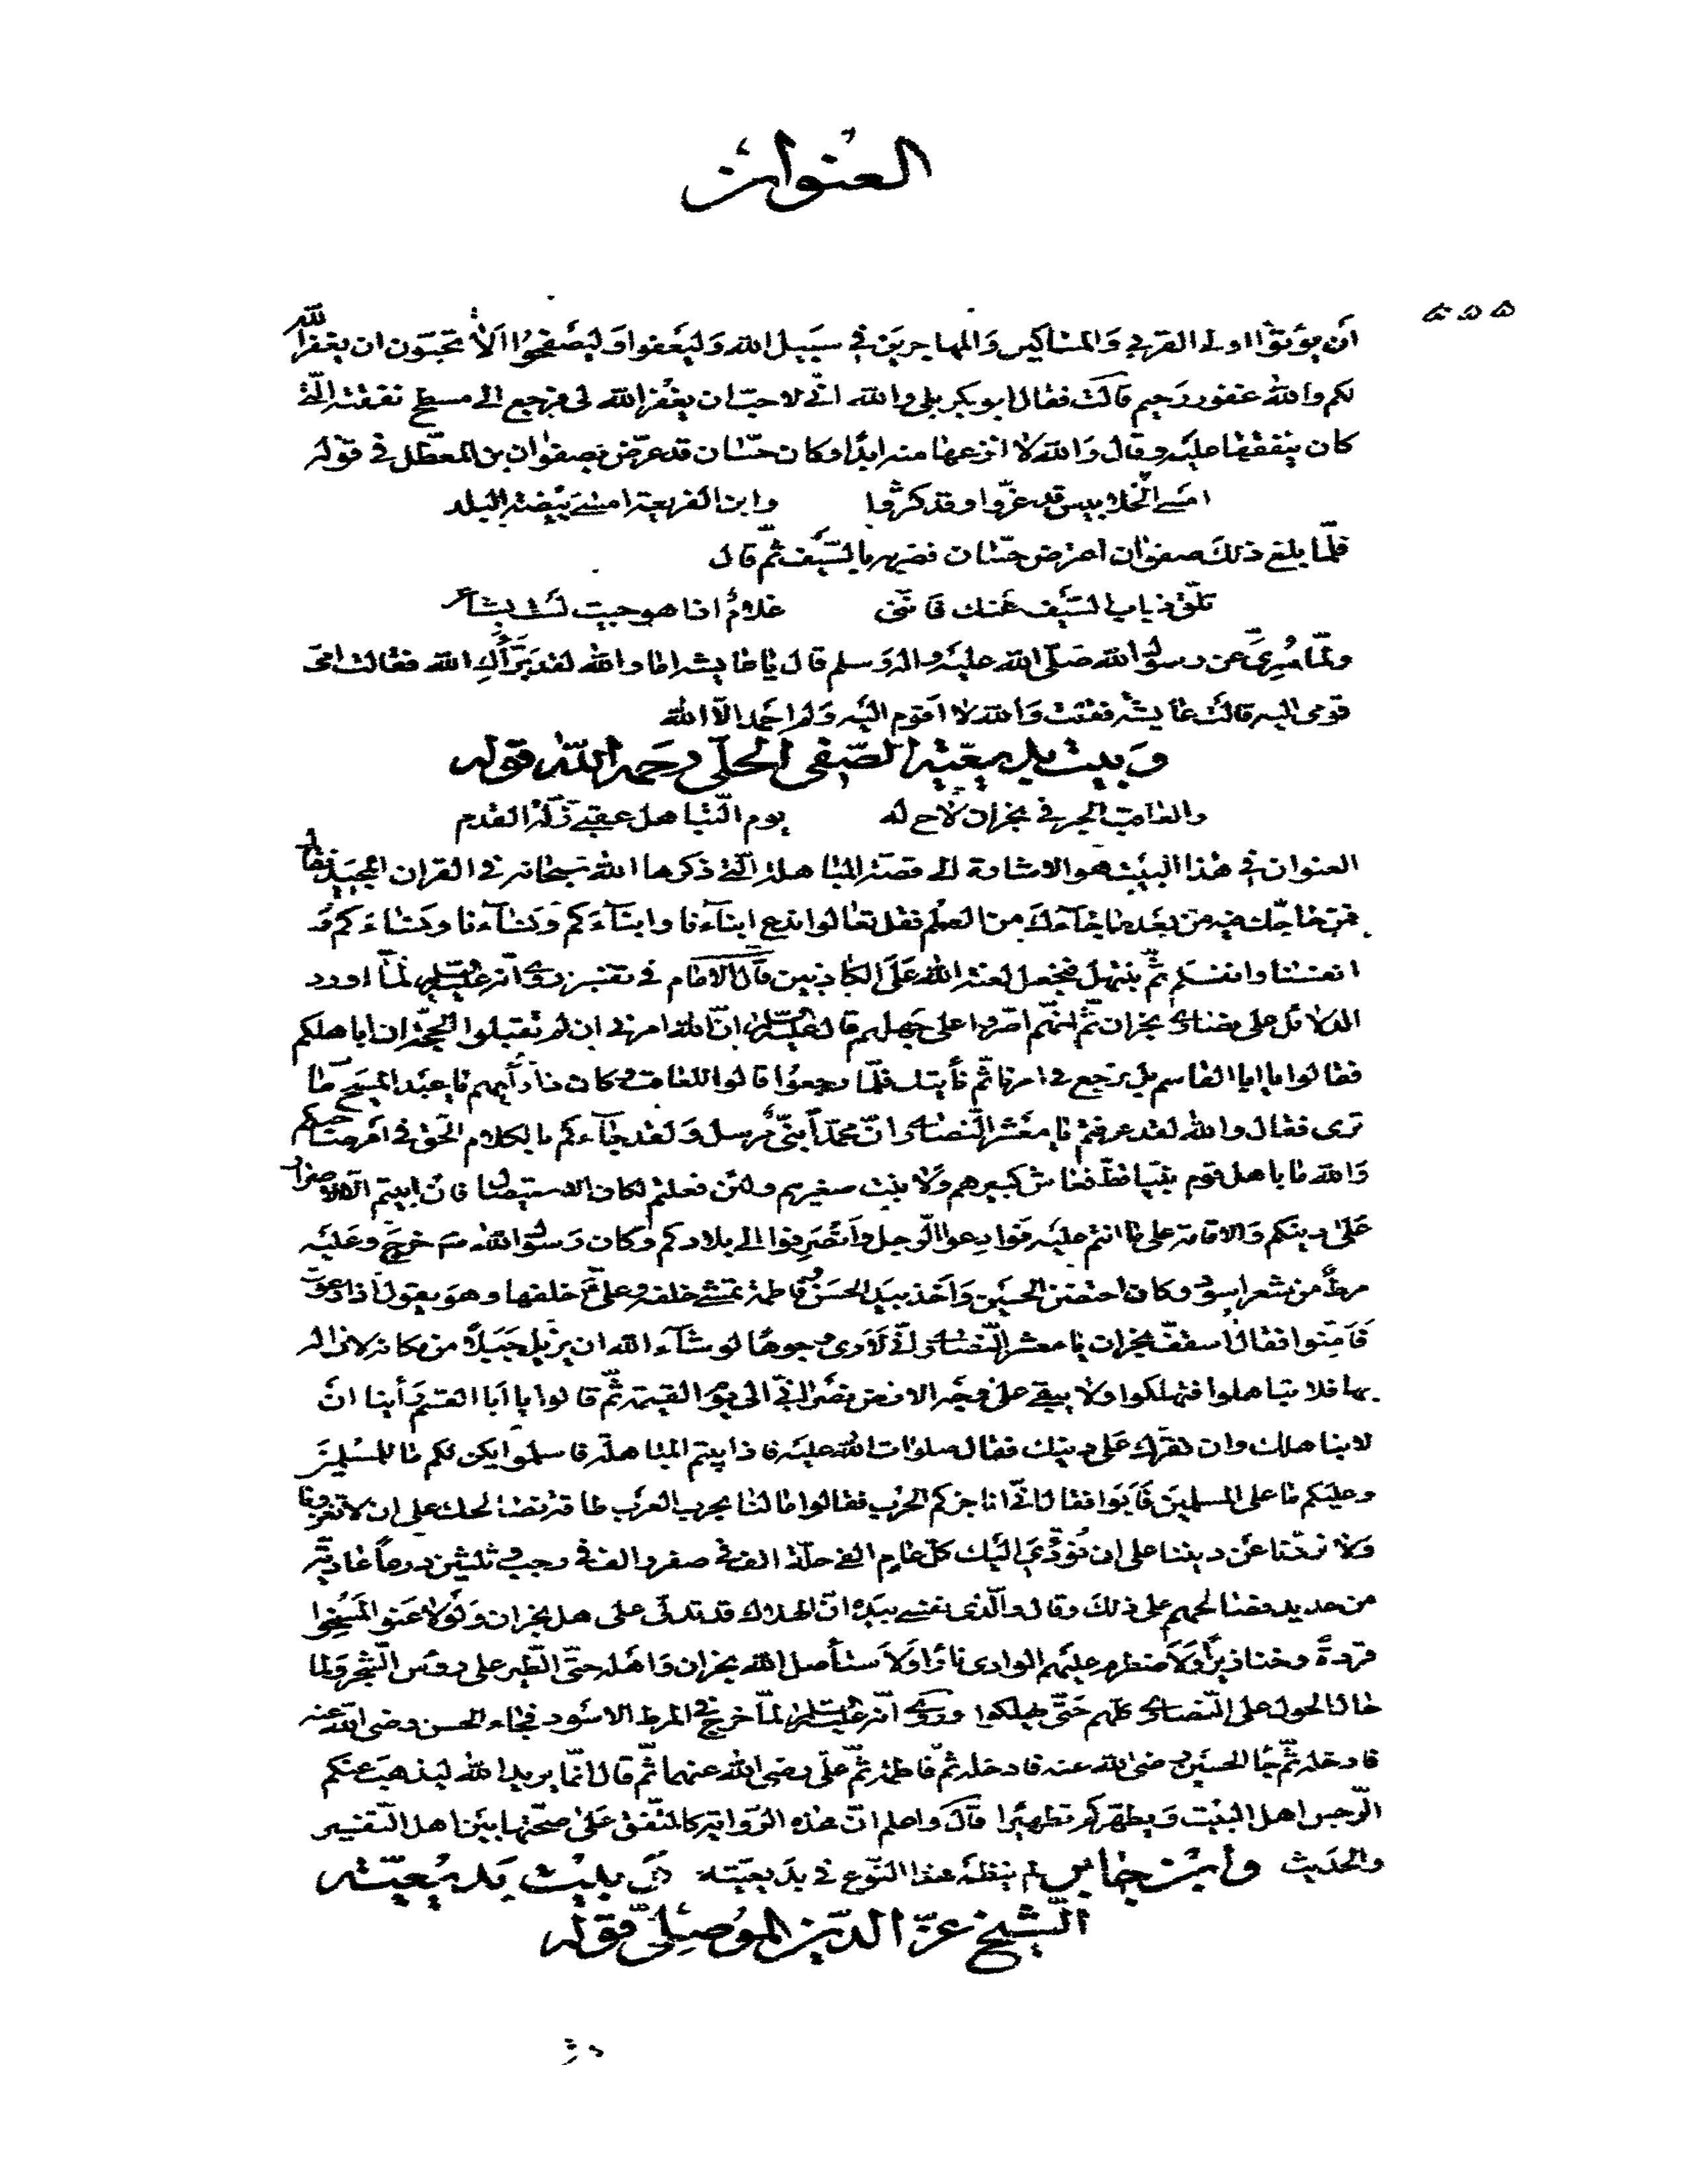 العنوان
٤٥٥
أن يؤتوا اولى القربى والمساكين والمهاجرين في سبيل الله وليعفوا وليصفحوا الا تحبون ان يغفر الله
لكم والله غفور رحيم قالت فقال ابو بكر بلى والله انّى لاحبّ ان يغفر الله لى فرجع الى مسطح نفقته الّتى
كان ينفقها عليه وقال والله لا انزعها منه ابدًا وكان حسّان قد عرّض بصفوان بن المعطّل في قوله
امسى الخلابيس قد عزّوا وقد كثروا وابن الفريعة امسى بيضة البلد
فلمّا بلغ ذلك صفوان اعترض حسّان فضربه بالسّيف ثمّ قال
تلقّ ذباب السّيف عنك فانّنى غلامٌ اذا هوجيت لست بشاعر
ولمّا سُرِىَ عن رسول الله صلّى الله عليه واله وسلم قال يا عايشه اما والله لقد برّأك الله فقالت امّى
قومى اليه قالت عايشه فقلت والله لا اقوم اليه ولا احمد الّا الله
وبيت بديعيّة الصّفى الحلّى رحمه الله قوله
والعاقب الحبر في نجران لاح له يوم التّباهل عقبى زلّة القدم
العنوان في هذا البيت هو الاشارة الى قصّة المباهلة الّتى ذكرها الله سبحانه في القران المجيد فقال
فمن حاجّك فيه من بعد ما جاءك من العلم فقل تعالوا ندع ابناءنا وابناءكم ونساءنا ونساءكم و
انفسنا وانفسكم ثمّ نبتهل فنجعل لعنة الله على الكاذبين قال الامام في تفسيره روى انّه عليه السّلم لمّا اورد
الدلائل على نصارى نجران ثمّ انّهم اصرّوا على جهلهم قال عليه السّلم انّ الله امرنى ان لم تقبلوا الحجّة ان اباهلكم
فقالوا يا ابا القاسم بل نرجع في امرنا ثمّ نأتيك فلمّا رجعوا قالوا للعاقب وكان ذا رأيهم يا عبد المسيح ما
ترى فقال والله لقد عرفتم يا معشر النّصارى انّ محمّدًا نبىّ مرسل ولقد جاءكم بالكلام الحقّ في امر صاحبكم
والله ما باهل قوم نبيّا قطّ فعاش كبيرهم ولا نبت صغيرهم ولئن فعلتم لكان الاستيصال فان ابيتم الّا الاصرار
على دينكم والاقامة على ما انتم عليه فوادعوا الرّجل وانصرفوا الى بلادكم وكان رسول الله صم خرج وعليه
مرطٌ من شعر اسود وكان احتضن الحسين واخذ بيد الحسن وفاطمة تمشى خلفه وعلىّ ع خلفها وهو يقول اذا دعوت
فامّنوا فقال اسقف نجران يا معشر النّصارى انّى لارى وجوهًا لو شاء الله ان يزيل جبلًا من مكانه لازاله
بها فلا تباهلوا فتهلكوا ولا يبقى على وجه الارض نصرانىّ الى يوم القيمة ثمّ قالوا يا ابا القسم رأينا ان
لا نباهلك وان نقرّك على دينك فقال صلوات الله عليه فاذا ابيتم المباهلة فاسلموا يكن لكم ما للمسلمين
وعليكم ما على المسلمين فابوا فقال انّى اناجزكم الحرب فقالوا ما لنا بحرب العرب طاقة نصالحك على ان لا تغزونا
ولا تردّنا عن ديننا على ان نؤدّى اليك كلّ عام الفى حلّة الف في صفر والف في رجب وثلثين درعًا عاديّة
من حديد فصالحهم على ذلك وقال والّذى نفسى بيده انّ الهلاك قد تدلّى على اهل نجران ولو لاعنوا لمسخوا
قردةً وخنازير ولاضطرم عليهم الوادى نارًا ولاستأصل الله نجران واهله حتّى الطّير على رؤس الشّجر ولما
حال الحول على النّصارى كلّهم حتّى يهلكوا وروى انّه عليه السّلم لمّا خرج في المرط الاسود فجاء الحسن رضى الله عنه
فادخله ثمّ جاء الحسين رضى الله عنه فادخله ثمّ فاطمة ثمّ علىّ رضى الله عنهما ثمّ قال انّما يريد الله ليذهب عنكم
الرّجس اهل البيت ويطهّركم تطهيرًا قال واعلم انّ هذه الرّواية كالمتّفق على صحّتها بين اهل التّفسير
والحديث وابن جابر لم ينظم هذا النّوع في بديعيّته وبيت بديعيّة
الشّيخ عزّ الدّين الموصلىّ قوله